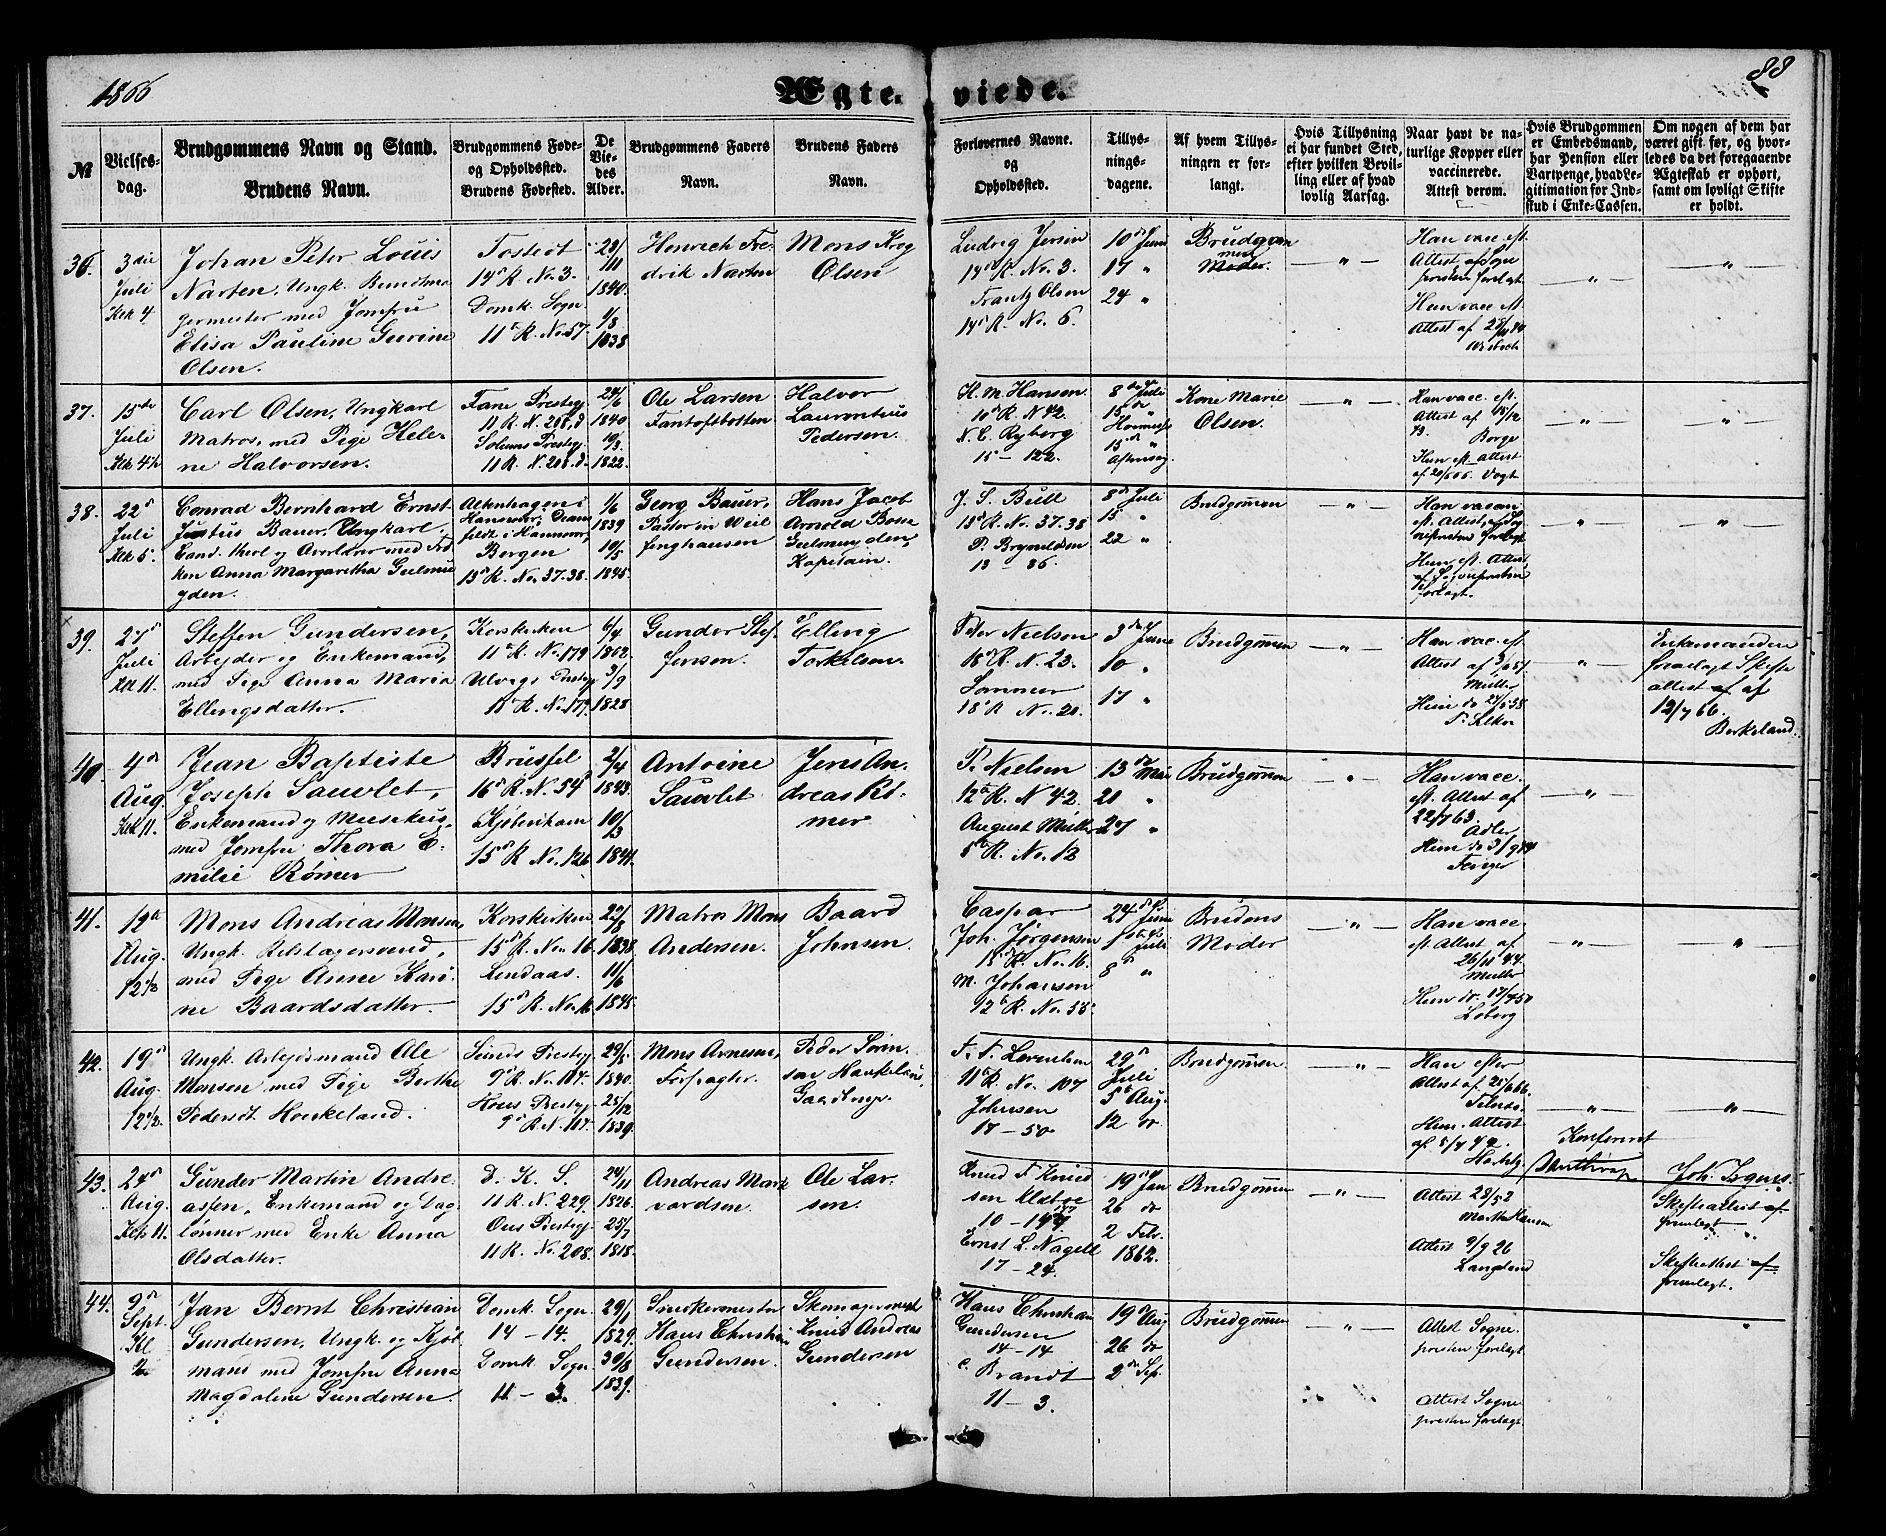 1866
Ægte.
viede.
88
№
Vielses-
dag.
Brudgommens Navn og Stand.
Brudens Navn.
Brudgommens Føde-
og Opholdssted.
Brudens Fødested.
De
Vie-
des
Alder.
Brudgommens Faders
Navn.
Brudens Faders
Navn.
Forlovernes Navne.
og
Opholdssted.
Tillys-
nings-
dagene.
Af hvem Tillys-
ningen er for-
langt.
Hvis Tillysning
ei har fundet Sted,
efter hvilken Bevil-
ling eller af hvad
lovlig Aarsag.
Naar havt de na-
turlige Kopper eller
vaccinerede.
Attest derom.
Hvis Brudgommen
er Embedsmand,
har Pension eller
Vartpenge, hvad Le-
gitimation for Ind-
skud i Enke-Cassen.
Om nogen af dem har
været gift før, og hvor-
ledes da det foregaaende
Ægteskab er ophørt,
samt om lovligt Skifte
er holdt.
36.
3die
Juli
Klk 4
Johan Peter Louis
Narten, Ungk. Bundtma
germester med Jomfru
Elisa Pauline Gurine
Olsen.
Tostedt
14de R. No. 3.
Domk. Sogn
11te R. No 57.
1840.
1/3
1838
Henrich Fre-
drik Narten
Mons Krog
Olsen
Ludvig Jersin
14de R. No. 3.
Frantz Olsen
14de R. No. 6.
10de Juni
17 "
24 "
Brudgom
men
Moder.
— " —
Han vacc. eft.
Attest af Sogne
præsten forelagt
Hun vacc. eft.
— " —
— " —
37.
15de
Juli
Klk 4½
Carl Olsen, Ungkarl
Matros, med Pige Hele-
ne Halvorsen.
Fane Prestegj.
11 R. N. 208, d
Solums Prestegj.
11 R. N. 208. d.
24/6
1840
10/3.
1822.
Ole Larsen
Fantoftbotten
Halvor
Laurentius
Pedersen.
H. M. Hansen
10de R. N 42.
N. C. Ryberg
15 — 122.
8de Juli
15 "
Aftensag
Kone Marie
Olsen.
— " —
Han vacc. eft.
Attest af 18/12
43. Borge
Hun eft. Attest
Vogt
— " —
— " —
38.
22de
Juli
Klk 5.
Conrad Bernhard Ernst
Justus Bauer, Ungkarl,
Cand. theol og Overlærer med Frø
ken Anna Margaretha Geelmui
yden.
Altenhagen i
Hannover, Diems
feldt i Hannover,
Bergen
13de R. No. 37.38.
1/6
1839
10/5
1845.
Georg Bauer,
Pastor in Weil
finghausen
Hans Jacob
Arnold Bosse
Geelmuyden,
Kapitain.
J. S. Bull
13de R. No. 37.38
P. Brynildsen
13 — 86.
8de Juli
15 "
22 "
Brudgommen
— " —
Hun eft. Attest
forelagt.
— " —
— " —
39.
27de
Juli
Klk 11.
Steffen Gundersen,
Arbejder og Enkemand,
med Pige Anna Maria
Ellingsdatter.
Korskirken
11te R. No. 179
Ulvigs Prestegj.
11te R. No. 179.
6/4
1812.
3/9
1828
Gunder Stef
fensen.
Elling
Torkelsen.
Peter Nielsen
18de R. N. 23.
Sommer
18de R No. 20.
3de Juni
10 "
17 "
Brudgommen
— " —
Han vac. eft.
Müller
— " —
Enkemanden
forelagt Skifte
attest af af
12/7 66.
Berkeland.
40.
4de
Aug.
Klk 11.
Jean Baptiste
Joseph Sauvlet,
Enkemand og Musikus,
med Jomfru Thora E-
milie Rømer
Brüssel
16de R. N. 54
Kjøbenhavn
15de R. No. 126
2/4
1843.
10/3
1841.
Antoine
Sauvlet
Jens An-
dreas Rø-
mer
P. Nielsen
12te R. N 42.
August Müller
5te R. No. 12
13de Mai
20 "
27 "
Brudgommen
— " —
Han vacc.
eft. Attest af
22/7 63.
Adler
— " —
41.
12te
Aug.
12½
Mons Andreas Monsen,
Ungk. Rebslagersvend,
med Pige Anne Kari-
ne Baardsdatter.
Korskirken
15de R. No. 16.
Lindaas.
15de R. No. 16
22/8
1838.
11/6
1845.
Matros Mons
Andersen.
Baard
Johnsen.
Caspar
Joh. Jørgensen
15de R. No. 16.
M. Johansen
12te R. No. 55.
24de Juni
1ste Juli
8de "
Brudens
Moder
— " —
Han vacc
eft. Attest af
26/11 44.
Müller
Loberg
— " —
"
42.
19de
Aug.
12½.
Ungk. Arbejdsmand Ole
Monsen med Pige Berthe
Pedersdt. Houkeland.
Sunds Prestegj.
9de R. No. 107.
Hous Prestegj.
9de R. No. 107.
1840.
25/12
1839.
Mons Arnesen,
Forpagter.
Peder Søren-
sen Haukeland,
Gaardbruger.
11te R. No. 107
Johnsen
17 — 50
29de
Juli
5te Aug.
12 do.
Brudgommen
— " —
Han efter
Attest af 25/6 66.
Hun. Attest
— " —
— " —
Konfereret
43.
24de
Aug.
Klk 11.
Gunder Martin Andre-
assen, Enkemand og Dag
lønner med Enke Anna
Olsdatter.
D. K. S.
11 R. N. 229.
Ous Prestegj.
11 R. No. 208.
24/11
1826.
25/7
1818.
Andreas Mark
vardsen.
Ole Lar-
sen.
Knud T. Knud
sen
Ernst L. Nagell
17 — 24.
19de Jan
26 do
2 Febr.
1862.
Brudgommen
— " —
Attest 9/9 26
Langeland
Skifteattest af
fremlagt
Skifteattest af
fremlagt.
44.
9de
Sept.
Kl
2
Jan Bernt Christian
Gundersen, Ungk. og Kjøb
mand med Jomfru Anna
Magdalene Gundersen.
Domk. Sogn.
14 — 14.
Domk. Sogn
11 — 3.
29/1
1829.
30/8
1839.
Snedkermester
Hans Christian
Gundersen.
Skomagermest
Knud Andreas
Gundersen
Hans Christian
Gundersen
14 — 14
C. Brandt
11 — 3.
19de Aug
26 do
2den Sep.
Brudgommen
— " —
Attest Sogne-
præsten forelagt
Attest Sogne-
præsten forelagt
"